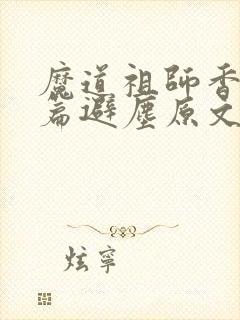 魔道祖師香
篇避塵原文
炫寧